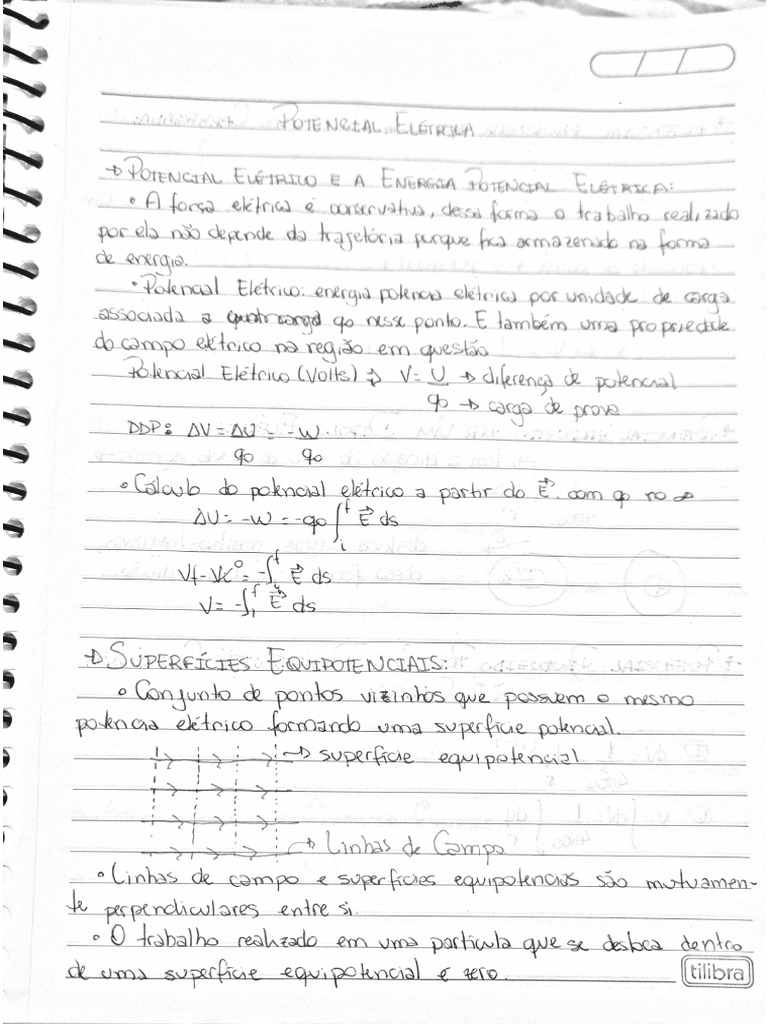 POTENCIAL ELÉTRICA
→ POTENCIAL ELÉTRICO E A ENERGIA POTENCIAL ELÉTRICA:
• A força elétrica é conservativa, dessa forma o trabalho realizado
por ela não depende da trajetória porque fica armazenado na forma
de energia.
• Potencial Elétrico: energia potencia elétrica por unidade de carga
associada a q0 nesse ponto. E também uma propriedade
do campo elétrico na região em questão
Potencial Elétrico (Volts) ⇒ V = U → diferença de potencial
q0 → carga de prova
DDP: ΔV = ΔU = -W
q0 q0
• Cálculo do potencial elétrico a partir do E⃗ com q0 no ∞
ΔU = -W = -q0 ∫ᵢᶠ E⃗ ds
Vf - Vi⁰ = -∫ᵢᶠ E⃗ ds
V = -∫ᵢᶠ E⃗ ds
→ SUPERFÍCIES EQUIPOTENCIAIS:
• Conjunto de pontos vizinhos que possuem o mesmo
potencia elétrico formando uma superfície potencial.
→ superfície equipotencial
→ Linhas de Campo
• Linhas de campo e superfícies equipotenciais são mutuamen-
te perpendiculares entre si.
• O trabalho realizado em uma partícula que se desloca dentro
de uma superfície equipotencial é zero.
tilibra